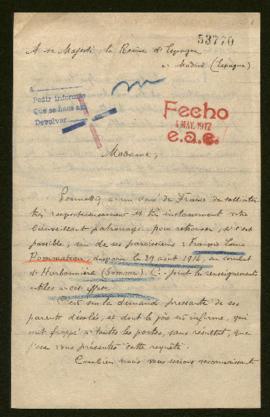 53770
A sa Majesté, la Reine d'Espagne
à Madrid (Espagne)
Pedir informe
Que se haga
Devolver
Fecho
4 MAY. 1917
e.a.e.
Madame,
Permettez à un curé de France de solliciter
très respectueusement et très instamment votre
bienveillant patronage, pour retrouver, si c'est
possible, un de ses paroissiens : François Louis
Pommateau, disparu le 29 août 1914, au combat
d'Harbonnière (Somme). Ci-joint les renseignements
utiles à cet effet.
C'est sur la demande pressante de ses
parents désolés, et dont le père est infirme, qui
ont frappé à toutes les portes, sans résultat, que
j'ose vous présenter cette requête.
Combien nous vous serions reconnaissants